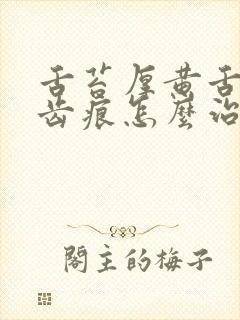 舌苔厚黄舌
齿痕怎麼治
阁主的梅子